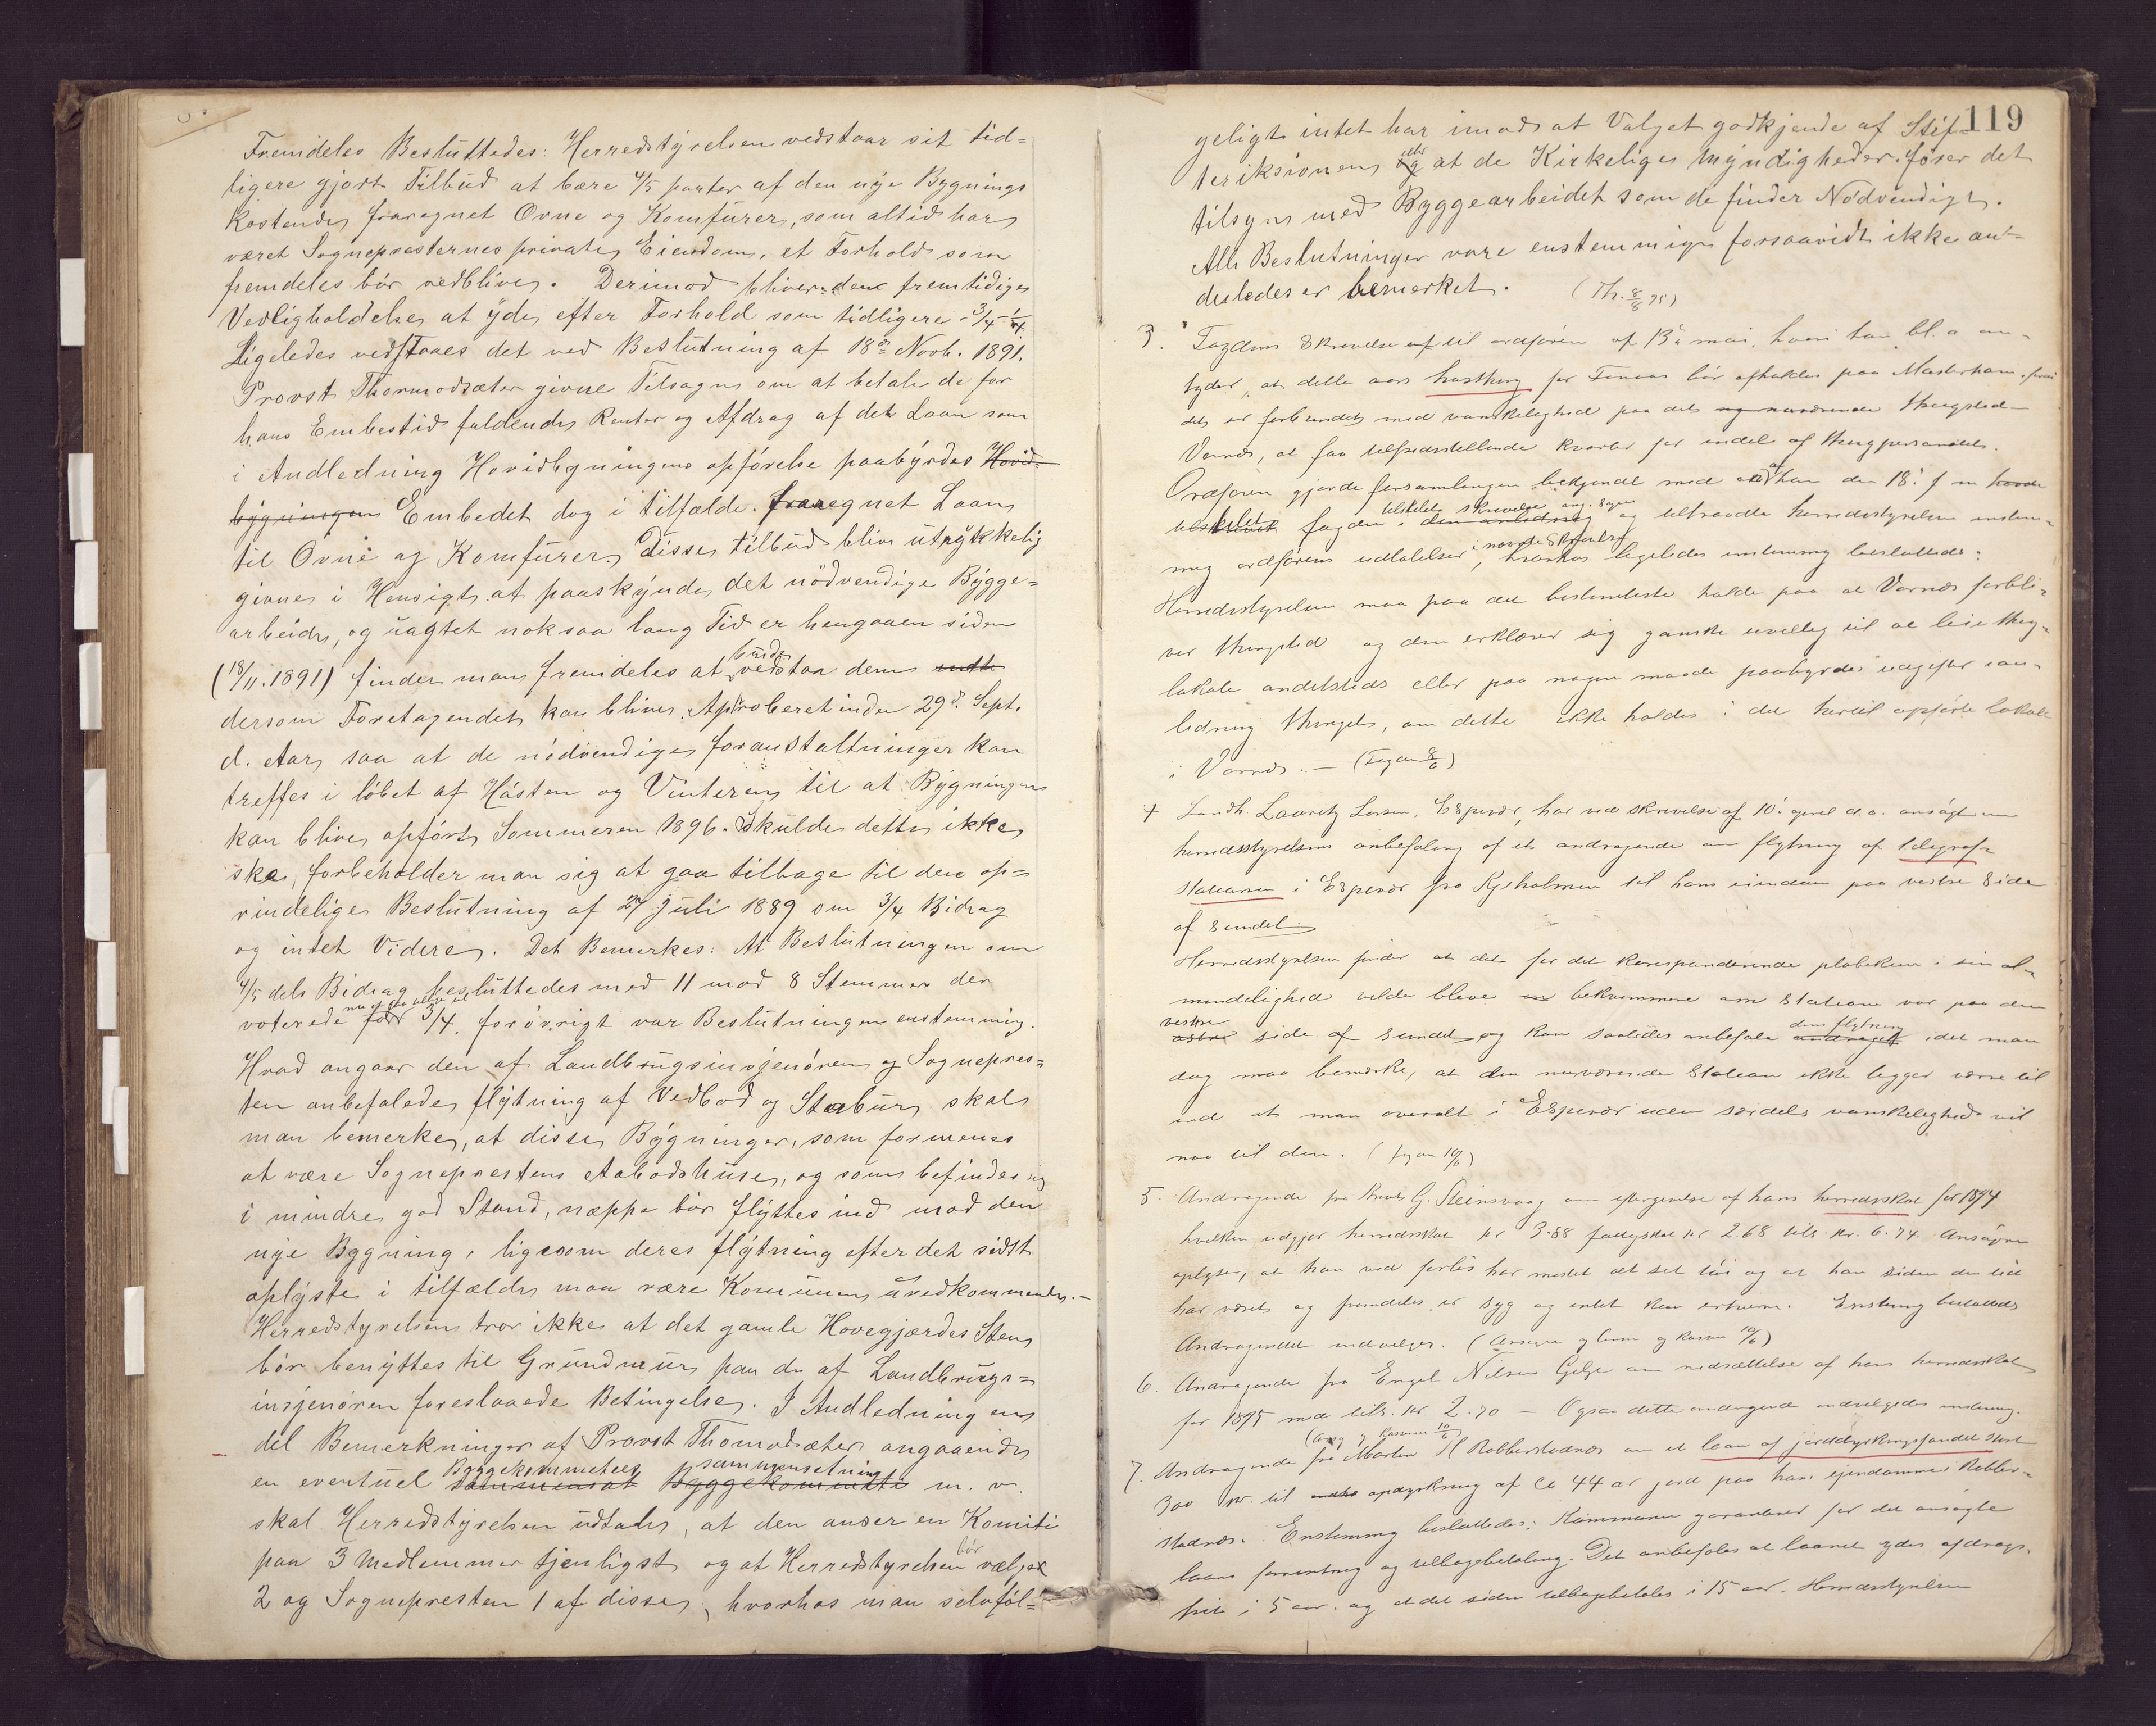 Fremdeles Besluttedes: Herredstyrelsen vedstaar sit tid=
ligere gjort Tilbud at bære 4/5 parter af den nye Bygnings
kostende, fraregnet Ovne og Komfurer, som altid har
været Sognepræsternes private Eiendom, et Forhold som
fremdeles bør vedblive. Derimod bliver den fremtidige
Vedligholdelse at yde efter Forhold som tidligere - 3/4 - 1/4.
Ligeledes vedstaaes det ved Beslutning af 18de Novb. 1891.
Provst Thormodsæter givne Tilsagn om at betale de for
hans Embedstid faldende Renter og Afdrag af det Laan som
i Andledning Hovidbygningens opførelse paabyrdes Hovid-
bygningen Embedet dog i tilfælde fraregnet Laan
til Ovne og Komfurer. Disse tilbud blive utrykkelig
givne i Hensigt at paaskynde det nødvendige Bygge=
arbeide, og uagtet noksaa lang Tid er hengaaen siden
(18/11.1891) finder man fremdeles at burde vedstaa dem
dersom Foretagendet kan blive Approberet inden 29de Sept.
d. Aar, saa at de nødvendige foranstaltninger kan
treffes i løbet af Høsten og Vinteren til at Bygningen
kan blive opført Sommeren 1896. Skulde dette ikke
ske, forbeholder man sig at gaa tilbage til den op=
rindelige Beslutning af 27 Juli 1889 om 3/4 Bidrag
og intet Videre. Det Bemerkes: At Beslutningen om
4/5 dels Bidrag besluttedes med 11 mod 8 Stemmer der
voterede for 3/4. forøvrigt var Beslutningen enstemmig.
Hvad angaar den af Landbrugsinsjenøren og Sognepres=
ten anbefalede flytning af Vedbod og Stabur, skal
man bemerke, at disse Bygninger, som formenes
at være Sogneprestens Aabodshuse, og som befindes sig
i mindre god Stand, næppe bør flyttes ind mod den
nye Bygning, ligesom deres flytning efter det sidst
oplyste i tilfælde maa være Komunen uvedkommende.-
Herredstyrelsen tror ikke at det gamle Hovegjærdes Sten
bør benyttes til Grundmur paa de af Landbrugs=
insjenøren foreslaaede Betingelse. I Andledning en
del Bemerkninger af Provst Thomodsæter angaaende
en eventuel Byggekommiteens sammensetning sammensat Byggekommitte m. v.
skal Herredstyrelsen udtale, at den anser en Komite
paa 3 Medlemmer tjenligst og at Herredstyrelsen bør vælge
2 og Sognepresten 1 af disse, hvorhos man selvføl=
119
geligt intet har imod at Valget godkjende af Stif-
teriksionen og eller at de Kirkelige Myndigheder føser det
tilsyn med Byggearbeidet som de finder Nødvendigt.
Alle Beslutninger vare enstemmige forsaavidt ikke an=
derledes er bemerket. (Th. 8/6 95)
3. Fogdens Skrivelse til ordføren af 13de mai, hvori han bl. a an-
tyder, at dette aars høstthing for Finaas bør afholdes paa Mosterhavn, fordi
det er forbundet med vanskelighed paa det nuværende thingsted
Vornæs, at faa tilfredsstillende kvarter for endel af thingpersonalet.
Ordføren gjorde forsamlingen bekjendt med at han den 18. f m havde
tilskrevet fogden i den anledning tilstilet skrivelse ang. sagen og tiltraadte herredsstyrelsen enstem-
mig ordførens udtalelser i nævnte skrivelse, hvorhos ligeledes enstemmig besluttedes:
Herredsstyrelsen maa paa det bestemteste holde paa at Vornæs forbli-
ver thingsted og den erklærer sig ganske uvillig til at leie thing-
lokale andetsteds eller paa nogen maade paabyrdes udgifter i an-
ledning thinget, om dette ikke holdes i det hertil opførte lokale
i Vornæs. — (Fogden 8/6)
4 Landh. Lauritz Larsen, Espevær, har ved skrivelse af 10. april d.a. ansøgt om
herredsstyrelsens anbefaling af et andragende om flytning af telegraf=
stationen i Espevær fra Kjeholmen til hans eiendom paa vestre side
af sundet.
Herredsstyrelsen finder at det for det korresponderende publikum i sin al-
mindelighed vilde blive bekvemmere om stationen var paa den
vestre østre side af sundet og kan saaledes anbefale dens flytning andraget, idet man
dog maa bemærke, at den nuværende station ikke ligger værre til
end at man overalt i Espevær uden særdeles vanskelighed vil
naa til den. (fogden 10/6)
5. Andragende fra Knut G. Steinsvaag om eftergivelse af hans herredsskat for 1894
hvilken udgjør herredsskat kr 3.88 fattigskat kr 2.68 tils. kr. 6.74. Ansøgeren
oplyser, at han ved forlis har mistet alt sit tøi og at han siden den tid
har været og fremdeles er syg og intet kan erhverve. Enstemmig besluttedes
Andragendet indvilges. (Ansøgeren og Kasserer 10/6)
6. Andragende fra Engel Nilsen Gilje om nedsættelse af hans herredsskat
for 1895 med tils. kr 2.70 — Ogsaa dette andragende indvilgedes enstemmig.
(Ansøg. og Kasserer 10/6)
7. Andragende fra Morten H Robberstadnæs om et laan af jorddyrkningsfondet stort
300 kr. til opdyrkning af ca 44 ar jord paa hans ejendomme i Robber-
stadnæs. Enstemmig besluttedes: Kommunen garanterer for det ansøgte
laans forrentning og tilbagebetaling. Det anbefales at laanet ydes afdrags-
frit i 5 aar, og at det siden tilbagebetales i 15 aar. Herredsstyrelsen